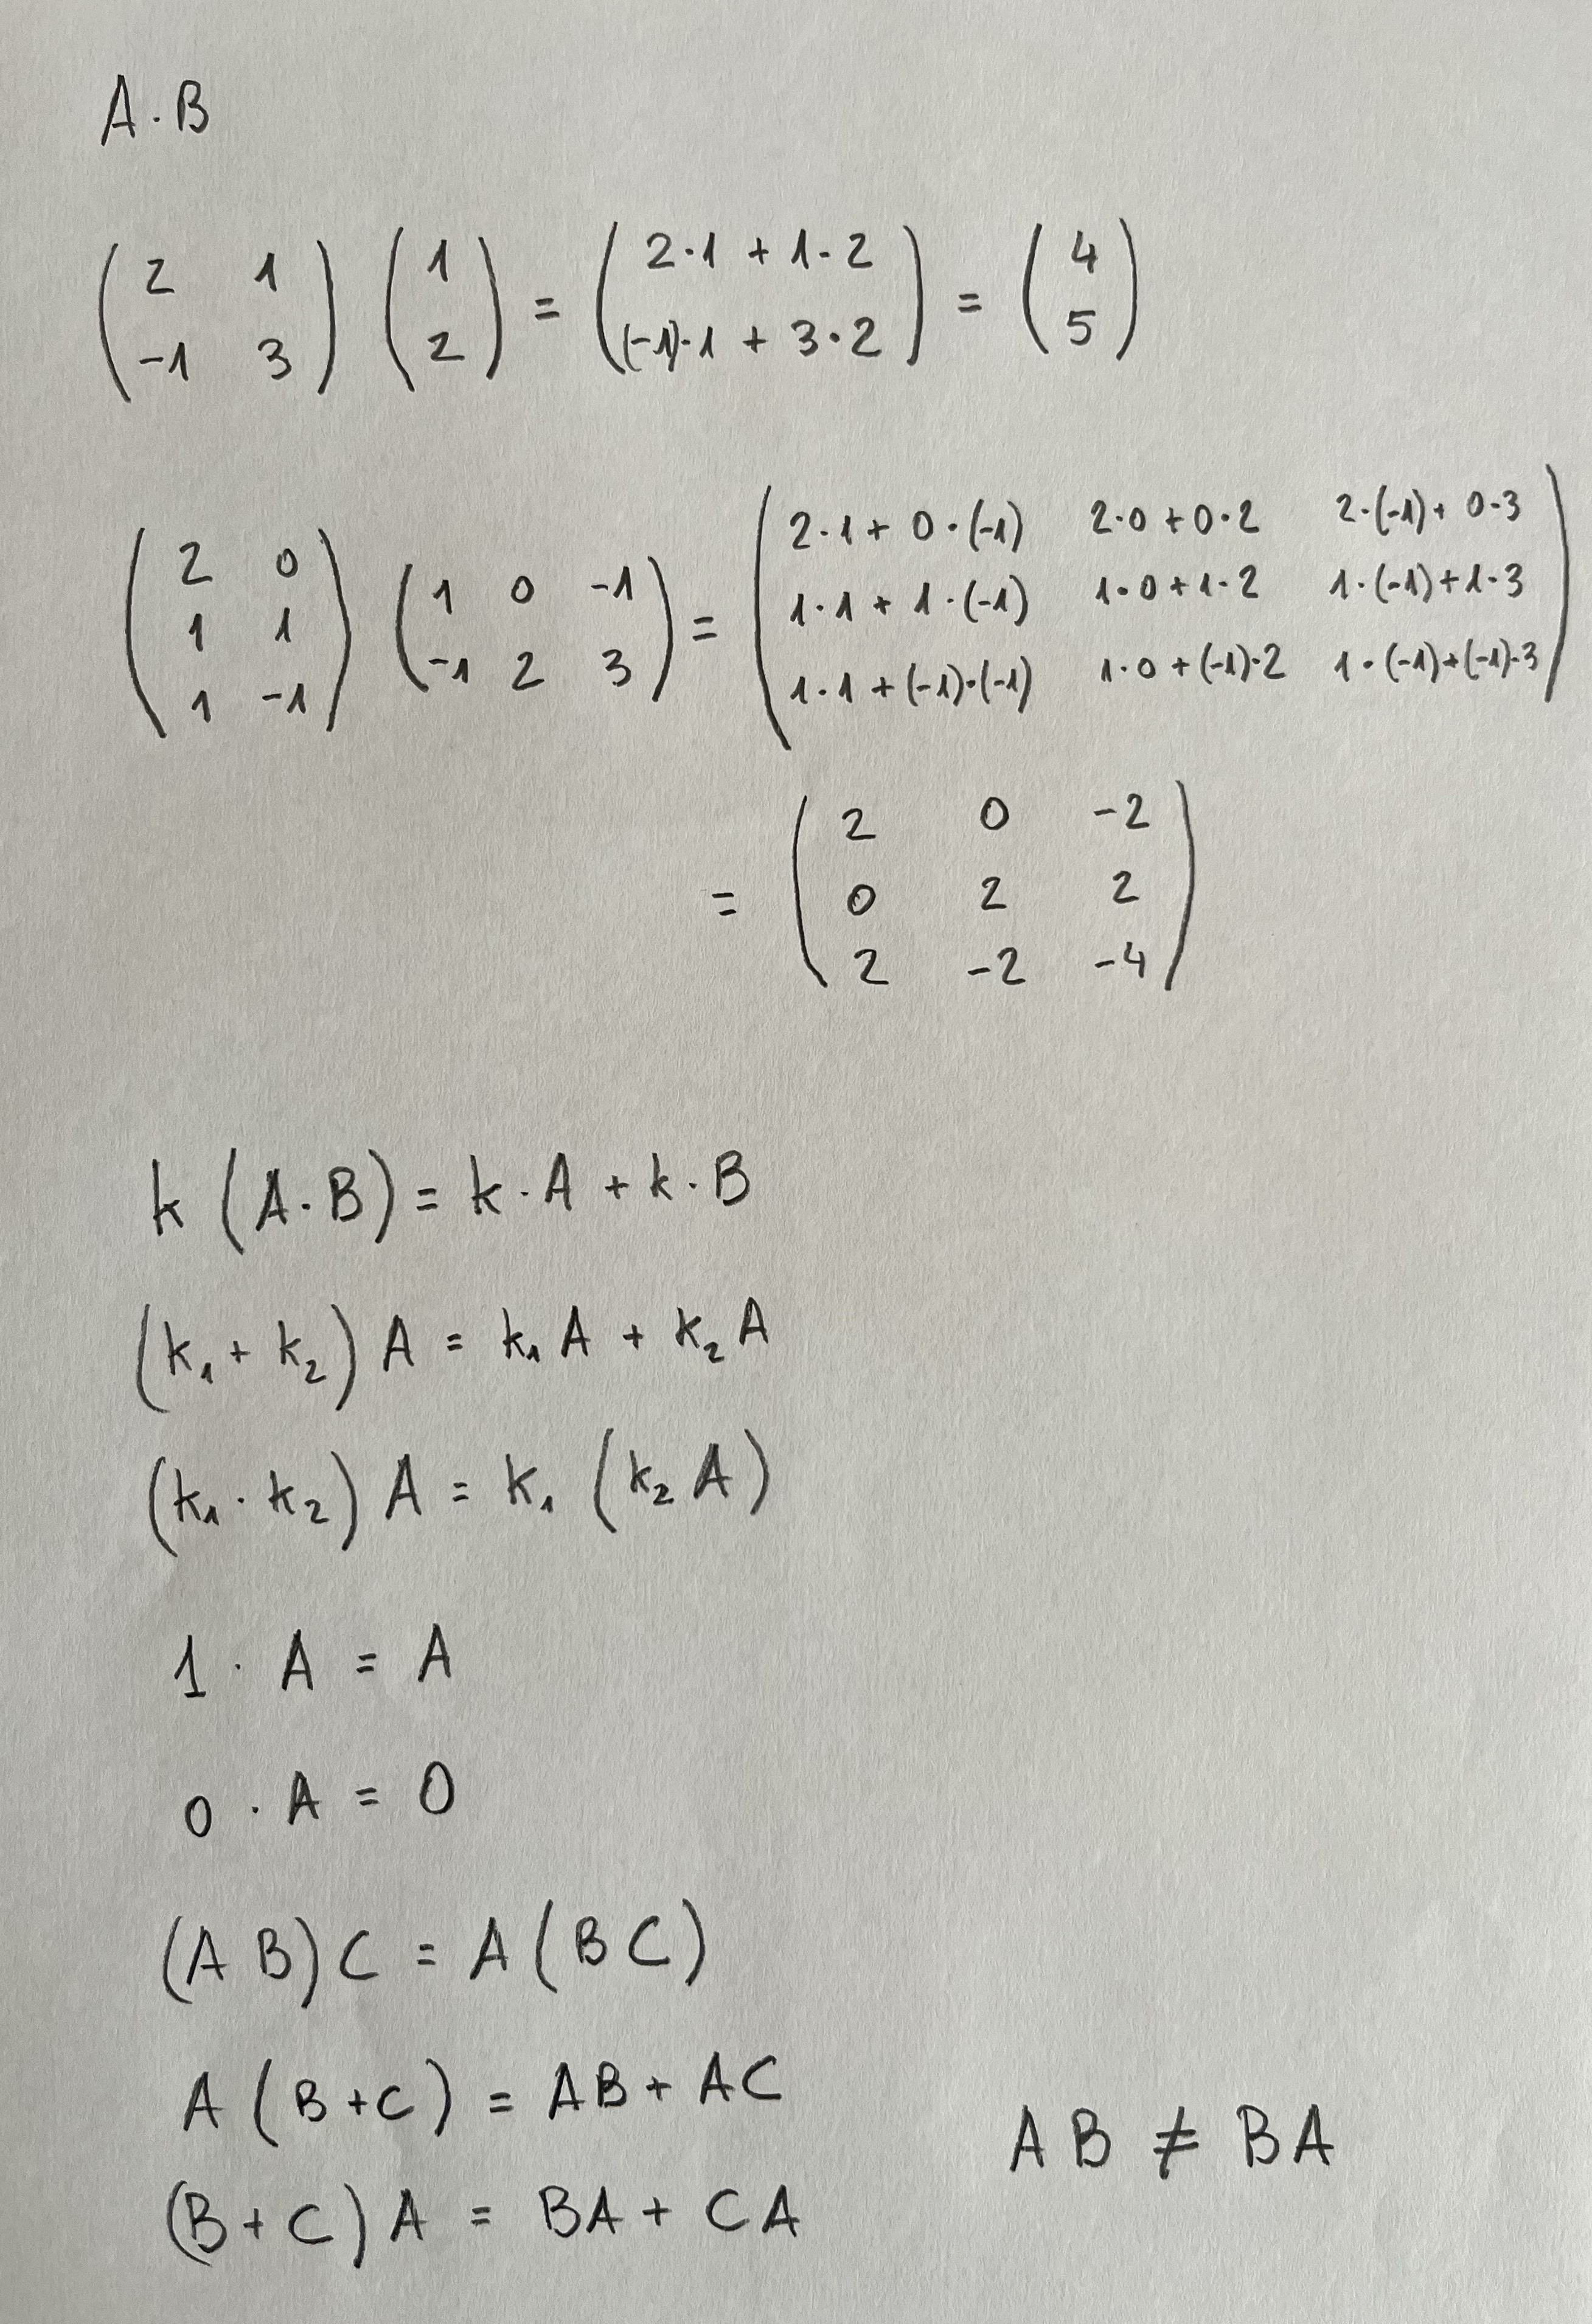 A · B
( 2 1 ; -1 3 ) ( 1 ; 2 ) = ( 2·1 + 1·2 ; (-1)·1 + 3·2 ) = ( 4 ; 5 )
( 2 0 ; 1 1 ; 1 -1 ) ( 1 0 -1 ; -1 2 3 ) = ( 2·1 + 0·(-1) 2·0 + 0·2 2·(-1) + 0·3 ; 1·1 + 1·(-1) 1·0 + 1·2 1·(-1) + 1·3 ; 1·1 + (-1)·(-1) 1·0 + (-1)·2 1·(-1) + (-1)·3 )
= ( 2 0 -2 ; 0 2 2 ; 2 -2 -4 )
k (A·B) = k·A + k·B
(k₁ + k₂) A = k₁ A + k₂ A
(k₁ · k₂) A = k₁ (k₂ A)
1 · A = A
0 · A = O
(A B) C = A (B C)
A (B + C) = AB + AC
A B ≠ B A
(B + C) A = BA + CA